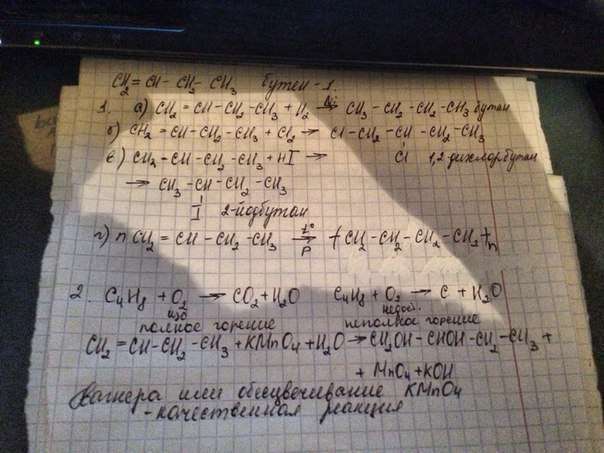 CH2=CH-CH2-CH3 бутен-1.
1. а) CH2=CH-CH2-CH3+H2 Ni→ CH3-CH2-CH2-CH3 бутан
б) CH2=CH-CH2-CH3+Cl2→ Cl-CH2-CH-CH2-CH3
Cl 1,2-дихлорбутан
в) CH2-CH-CH2-CH3+HI→
→ CH3-CH-CH2-CH3
I 2-йодбутан
г) n CH2=CH-CH2-CH3 t° P→ (-CH2-CH2-CH2-CH2-)n
2. C4H8+O2→CO2+H2O C4H8+O2→C+H2O
изб недост.
полное горение неполное горение
CH2=CH-CH2-CH3+KMnO4+H2O→CH2OH-CHOH-CH2-CH3+
+MnO4+KOH
Вагнера или обесцвечивание KMnO4
-качественная реакция